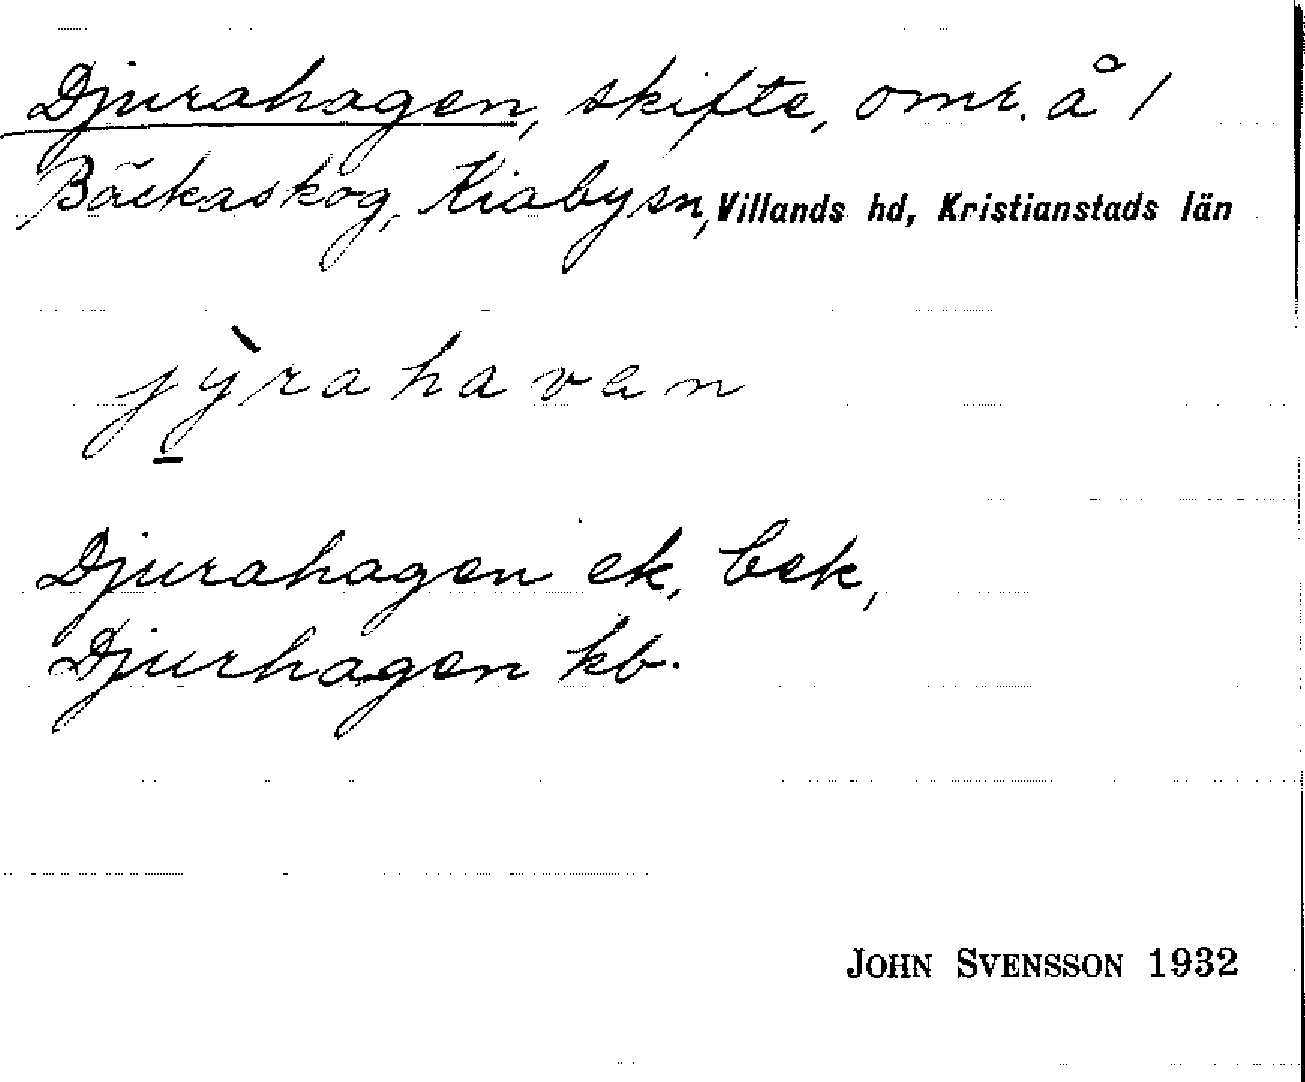 Djurahagen, skifte, omr. å 1
Bäckaskog, Kiaby sn, Villands hd, Kristianstads län
jỳrahavan
Djurahagen ek, bek,
Djurhagen kb.
JOHN SVENSSON 1932